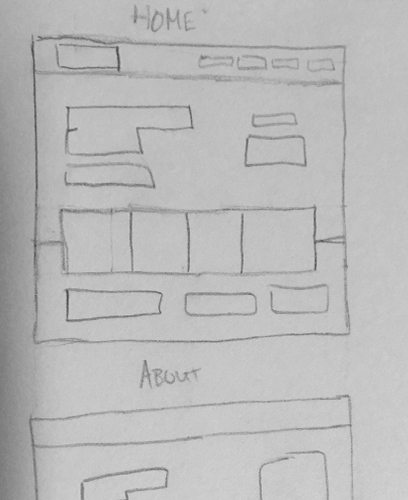 HOME
ABOUT